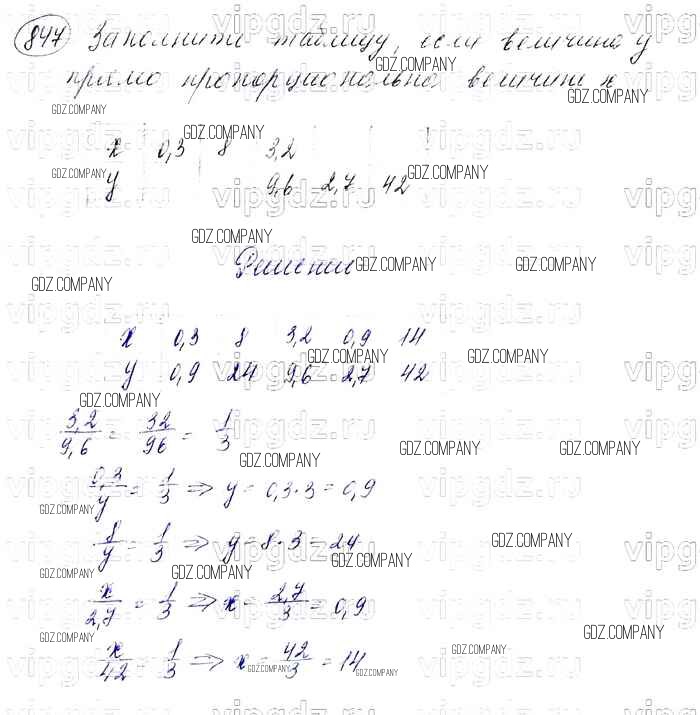 847 Заполните таблицу, если величина y
прямо пропорциональна величине x
x 0,3 8 3,2
y 9,6 2,7 42
Решение
x 0,3 8 3,2 0,9 14
y 0,9 24 9,6 2,7 42
3,2/9,6 = 32/96 = 1/3
0,3/y = 1/3 => y = 0,3·3 = 0,9
8/y = 1/3 => y = 8·3 = 24
x/2,7 = 1/3 => x = 2,7/3 = 0,9
x/42 = 1/3 => x = 42/3 = 14